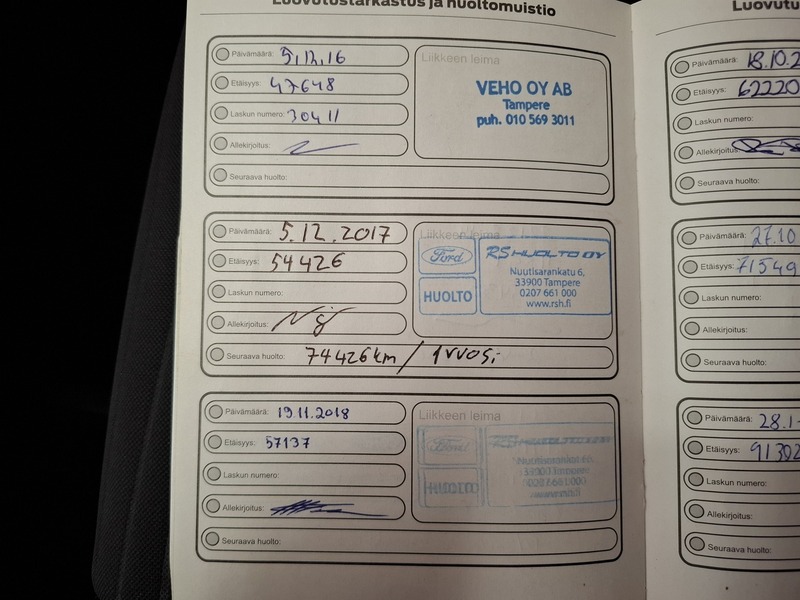 Luovutustarkastus ja huoltomuistio
Päivämäärä: 5.12.16
Etäisyys: 47648
Laskun numero: 30411
Allekirjoitus:
Seuraava huolto:
Liikkeen leima
VEHO OY AB
Tampere
puh. 010 569 3011
Päivämäärä: 5.12.2017
Etäisyys: 54426
Laskun numero:
Allekirjoitus:
Seuraava huolto: 74426km / 1vuosi
Liikkeen leima
Ford
HUOLTO
RS HUOLTO OY
Nuutisarankatu 6,
33900 Tampere
0207 661 000
www.rsh.fi
Päivämäärä: 19.11.2018
Etäisyys: 57137
Laskun numero:
Allekirjoitus:
Seuraava huolto:
Liikkeen leima
Ford
HUOLTO
RS HUOLTO OY
Nuutisarankatu 6,
33900 Tampere
0207 661 000
www.rsh.fi
Luovutu
Päivämäärä: 18.10.2
Etäisyys: 62220
Laskun numero:
Allekirjoitus:
Seuraava huolto:
Päivämäärä: 27.10
Etäisyys: 71549
Laskun numero:
Allekirjoitus:
Seuraava huolto:
Päivämäärä: 28.1
Etäisyys: 91302
Laskun numero:
Allekirjoitus:
Seuraava huolto: